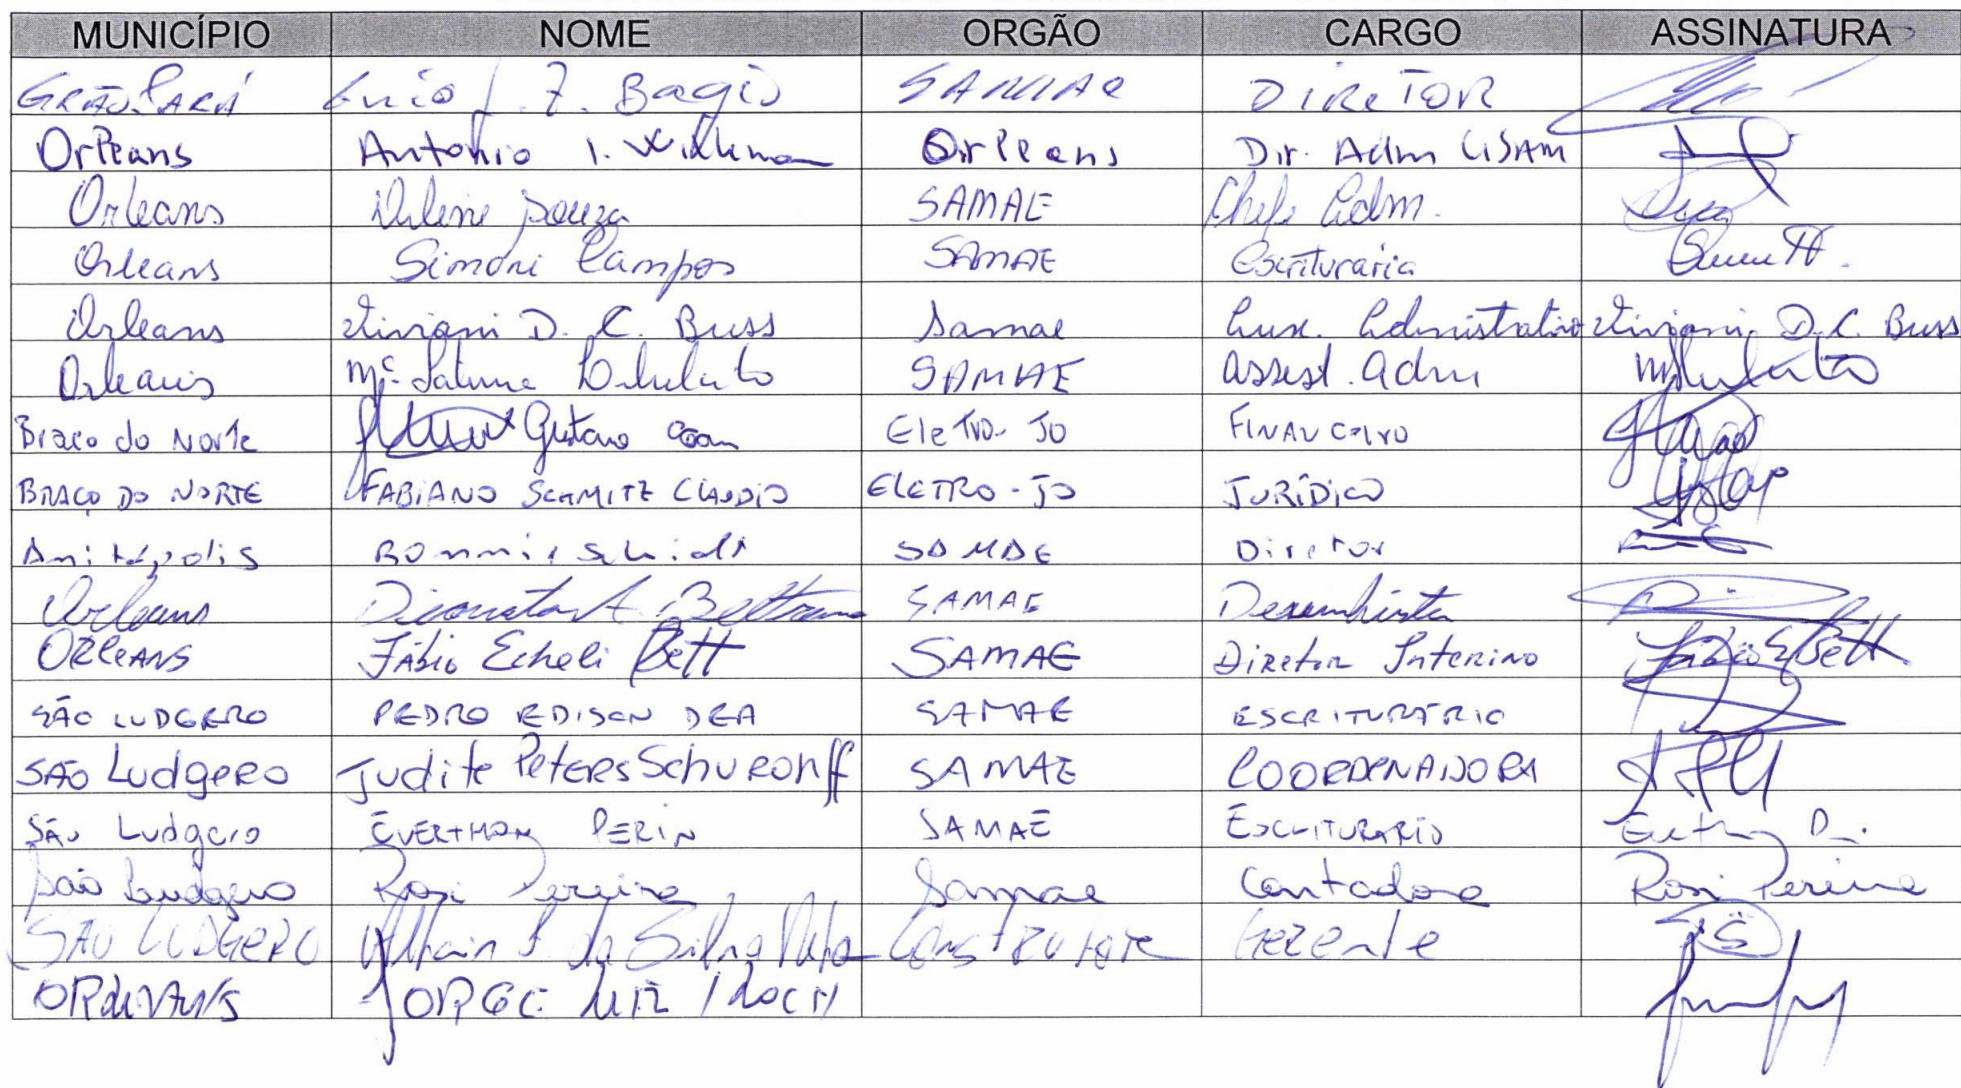 MUNICÍPIO NOME ORGÃO CARGO ASSINATURA
GRÃO PARÁ J. Z. Bagio SAMAE DIRETOR
Orleans Antonio I. Orleans Dir. Adm CISAM
Orleans Souza SAMAE Chefe Adm.
Orleans Simoni Campos SAMAE Escrituraria
Orleans Viviani D. C. Buss Samae Aux. Admistrativo Viviani D. C. Buss
Orleans Mª Salume SAMAE assest. adm
Braço do Norte Gustavo Coan Eletro-JO FINANCEIRO
BRAÇO DO NORTE FABIANO SCHMITZ CLAUDIO ELETRO-JO JURÍDICO
Anitápolis SAMAE Diretor
Orleans SAMAE Desenhista
ORLEANS Fábio Echeli Bett SAMAE Diretor Interino Fábio E Bett
SÃO LUDGERO PEDRO EDISON DEA SAMAE ESCRITURÁRIO
SÃO Ludgero Judite Peters SCHURohff SAMAE COORDENADORA
São Ludgero EVERTHON PERIN SAMAE ESCRITURARIO
São Ludgero Rosi Pereira Samae Contadora Rosi Pereira
SÃO LUDGERO da Silva Construtora Gerente
ORLEANS